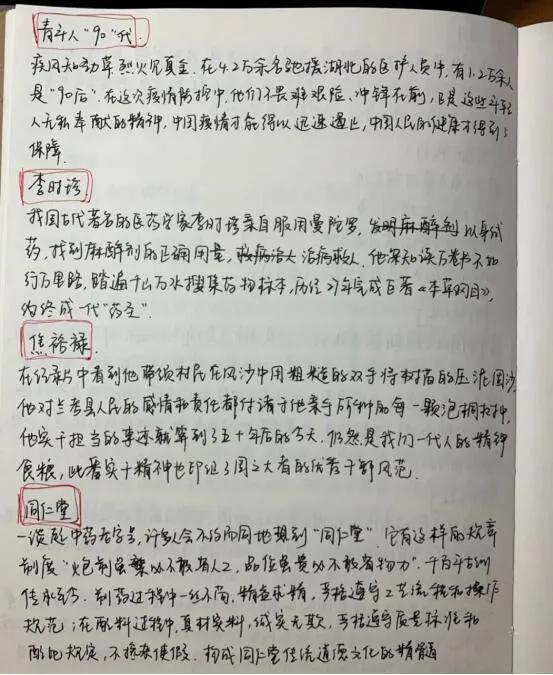 青年人"90"代.
疾风知劲草烈火见真金.在4.2万余名驰援湖北的医护人员中,有1.2万余人
是"90后".在这次疫情防控中,他们不畏艰险、冲锋在前,正是这些年轻
人无私奉献的精神,中国疫情才能得以迅速遏止,中国人民的健康才得到了
保障.
李时珍.
我国古代著名的医药学家李时珍亲自服用曼陀罗,发明麻醉剂 以身试
药,找到麻醉剂的正确用量,救病治人 治病救人.他深知读万卷书不如
行万里路,踏遍千山万水搜集药物标本,历经27年完成巨著《本草纲目》,
约终成一代"药圣".
焦裕禄.
在纪录片中看到他带领村民在风沙中用粗糙的双手将树苗的压泥固沙
他对兰考县人民的感情和责任都付诸于他亲手所种的每一颗泡桐树种,
他实干担当的事迹就算到了五十年后的今天.仍然是我们一代人的精神
食粮,此番实干精神也印证了国之大者的优秀干部风范.
同仁堂
一谈起中药老字号,许多人会不约而同地想到"同仁堂".它有这样的规章
制度"炮制虽繁必不敢省人工,品位虽贵必不敢省物力".千百年古训
传承至今.制药过程中一丝不苟,精益求精,严格遵守工艺流程和操作
规范;在配料过程中,真材实料,诚实无欺,严格遵守质量标准和
配比规定,不掺杂使假.构成同仁堂传统道德文化的精髓